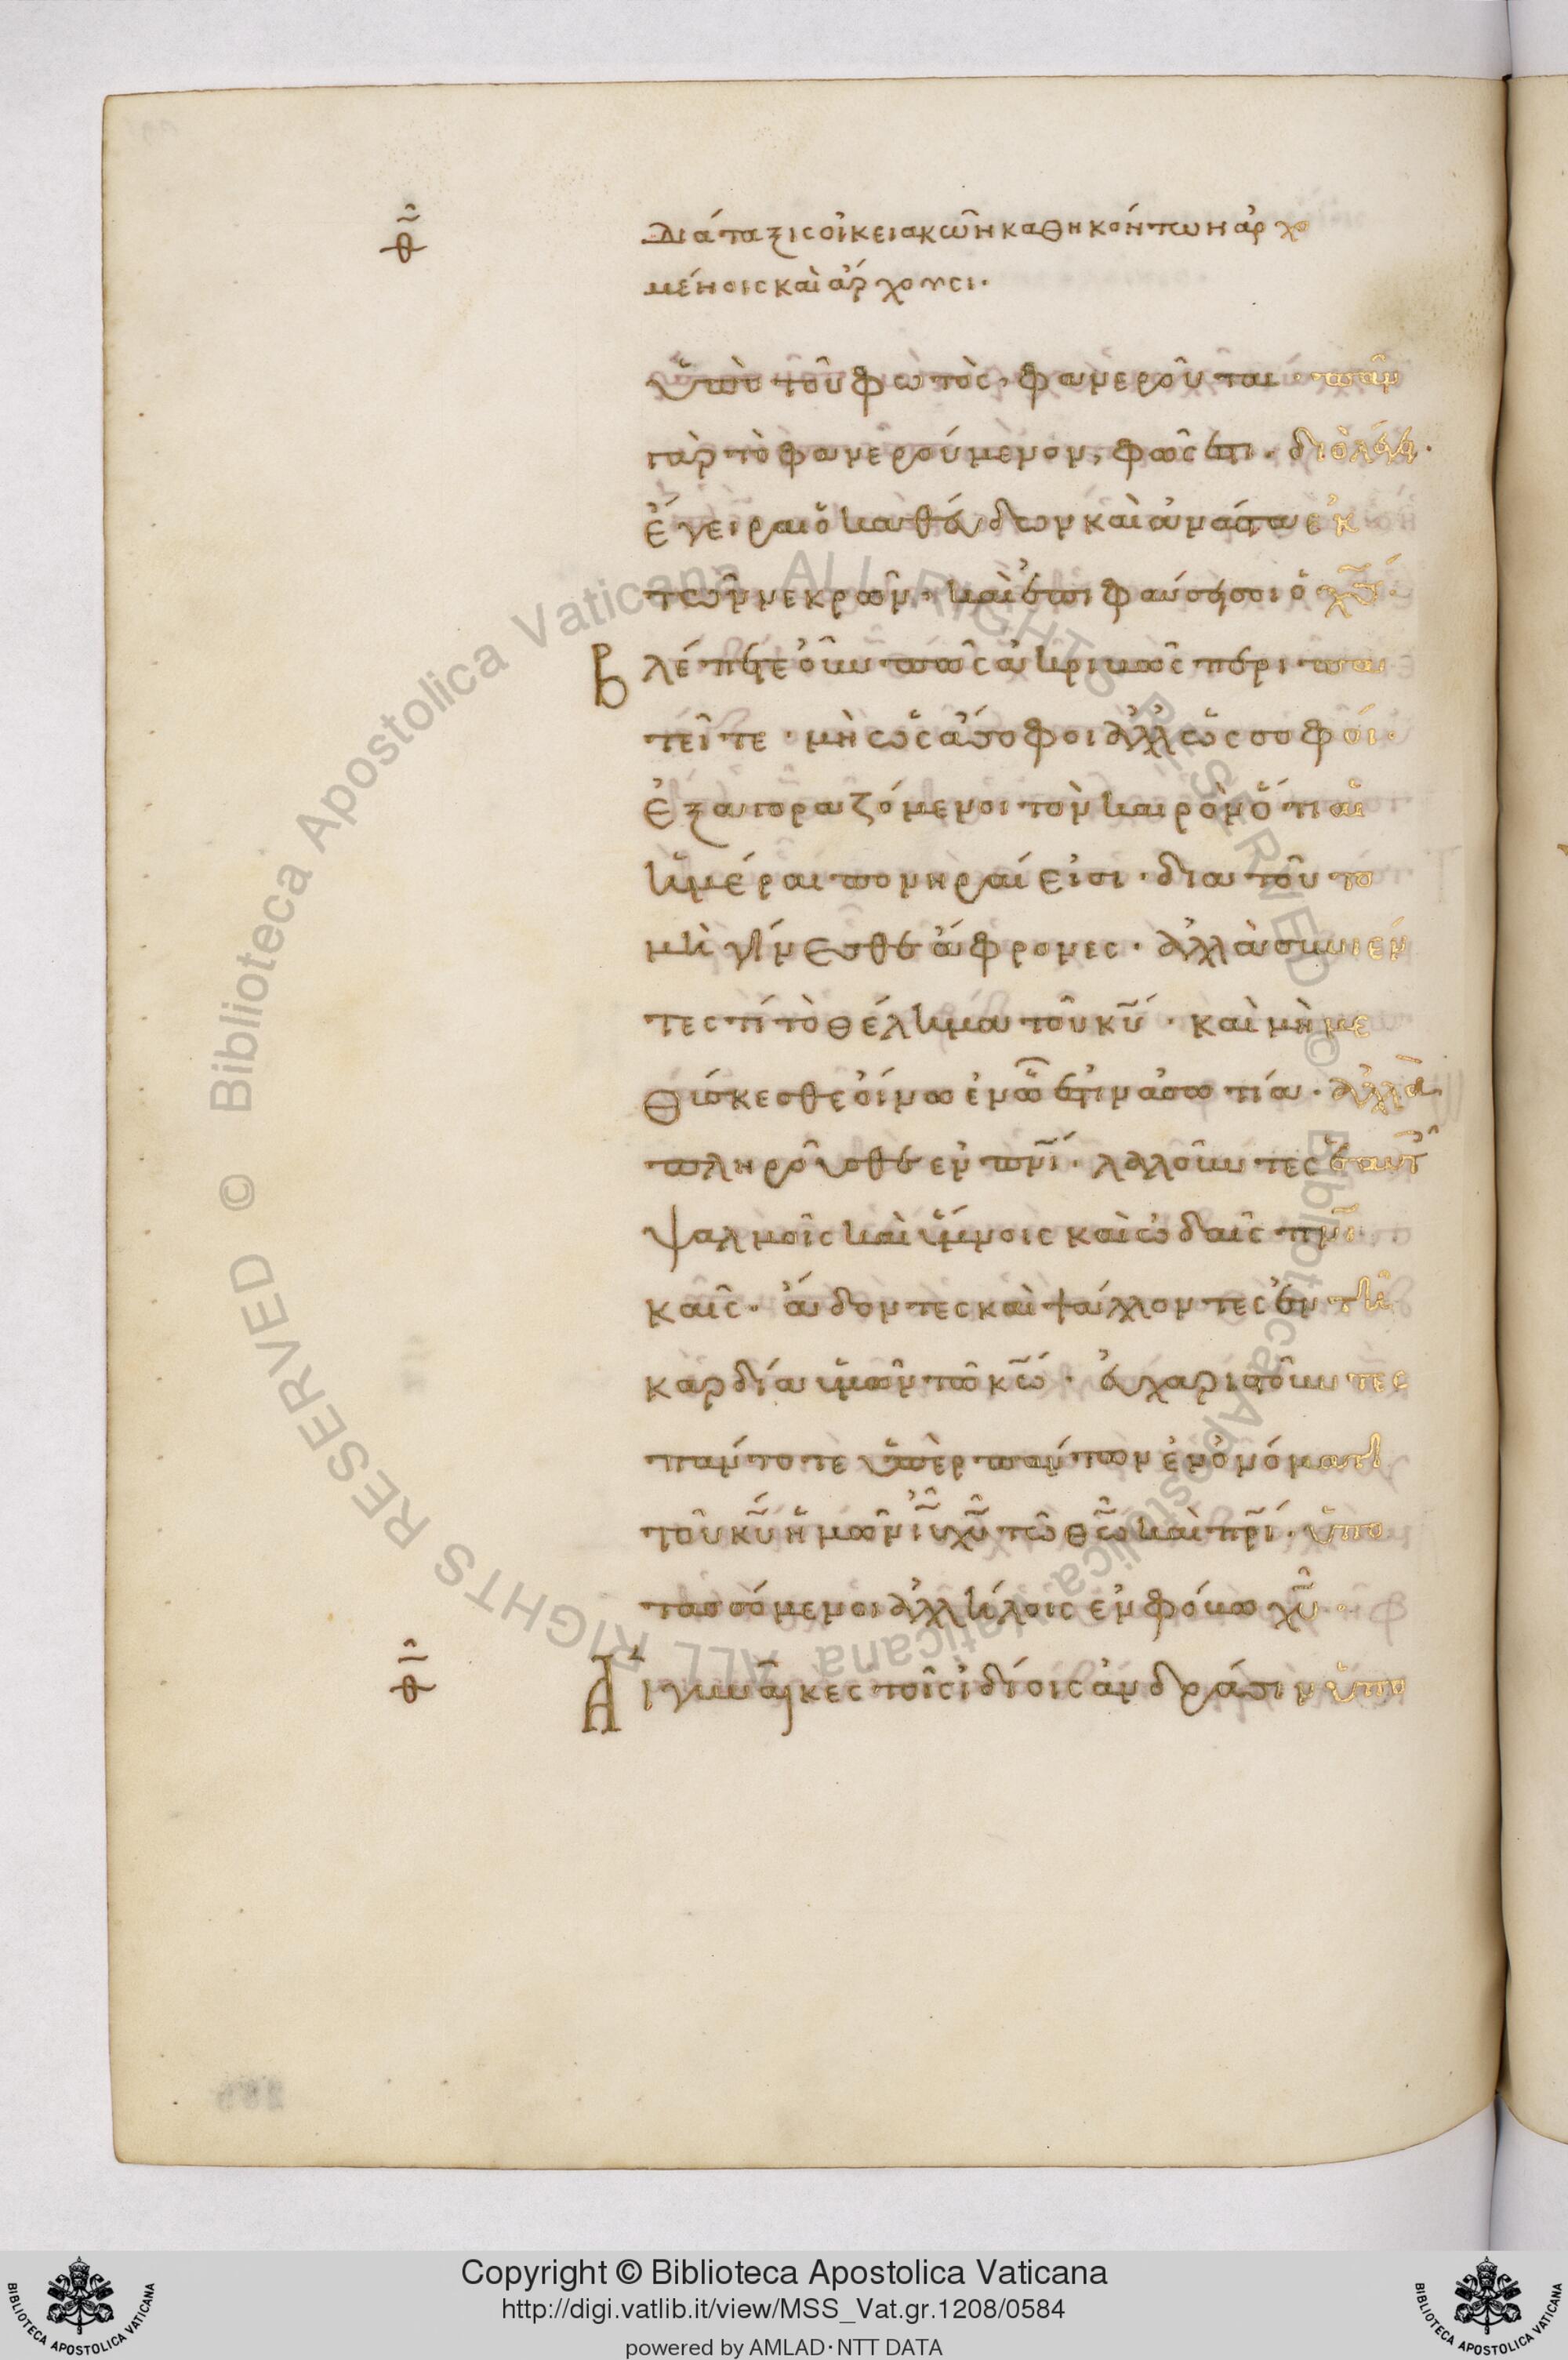 θ̑
Διάταξις οἰκειακῶν καθηκόντων ἀρχο
μένοις καὶ ἄρχουσι.
ὑπὸ τοῦ φωτὸς, φανεροῦται· πᾶν
γὰρ τὸ φανερούμενον, φῶς ἐστι. διὸ λέγει.
ἔγειραι ὁ καθεύδων καὶ ἀνάστα ἐκ
τῶν νεκρῶν. καὶ ἐπιφαύσει σοι ὁ χ̅ς̅.
Βλέπετε οὖν πῶς ἀκριβῶς περιπα
τεῖτε· μὴ ὡς ἄσοφοι ἀλλ' ὡς σοφοί.
ἐξαγοραζόμενοι τὸν καιρὸν ὅτι αἱ
ἡμέραι πονηραί εἰσι. διατοῦτο
μὴ γίνεσθε ἄφρονες. ἀλλὰ συνιέν
τες τί τὸ θέλημα τοῦ κ̅υ̅. καὶ μὴ με
θύσκεσθε οἴνω ἐν ᾧ ἐστὶν ἀσωτία. ἀλλὰ
πληροῦσθε ἐν π̅ν̅ι̅. λαλοῦντες ἑαυτ
ψαλμοῖς καὶ ὕμνοις καὶ ὠδαῖς π̅ν̅ι
καῖς. ἄδοντες καὶ ψάλλοντες ἐν τῆ
καρδία ὑμῶν τῶ κ̅ω̅. εὐχαριστοῦντες
πάντοτε ὑπὲρ πάντων ἐν ὀνόματι
τοῦ κ̅υ̅ ἡμῶν ι̅υ̅ χ̅υ̅ τῶ θ̅ω̅ καὶ π̅ρ̅ι̅. ὑπο
τασσόμενοι ἀλλήλοις ἐν φόβω χ̅υ̅
Αἱ γυναῖκες τοῖς ἰδίοις ἀνδράσιν ὑπο
© Biblioteca Apostolica Vaticana ALL RIGHTS RESERVED © Biblioteca Apostolica Vaticana ALL RIGHTS RESERVED
Copyright © Biblioteca Apostolica Vaticana
http://digi.vatlib.it/view/MSS_Vat.gr.1208/0584
powered by AMLAD·NTT DATA
BIBLIOTECA APOSTOLICA VATICANA
BIBLIOTECA APOSTOLICA VATICANA